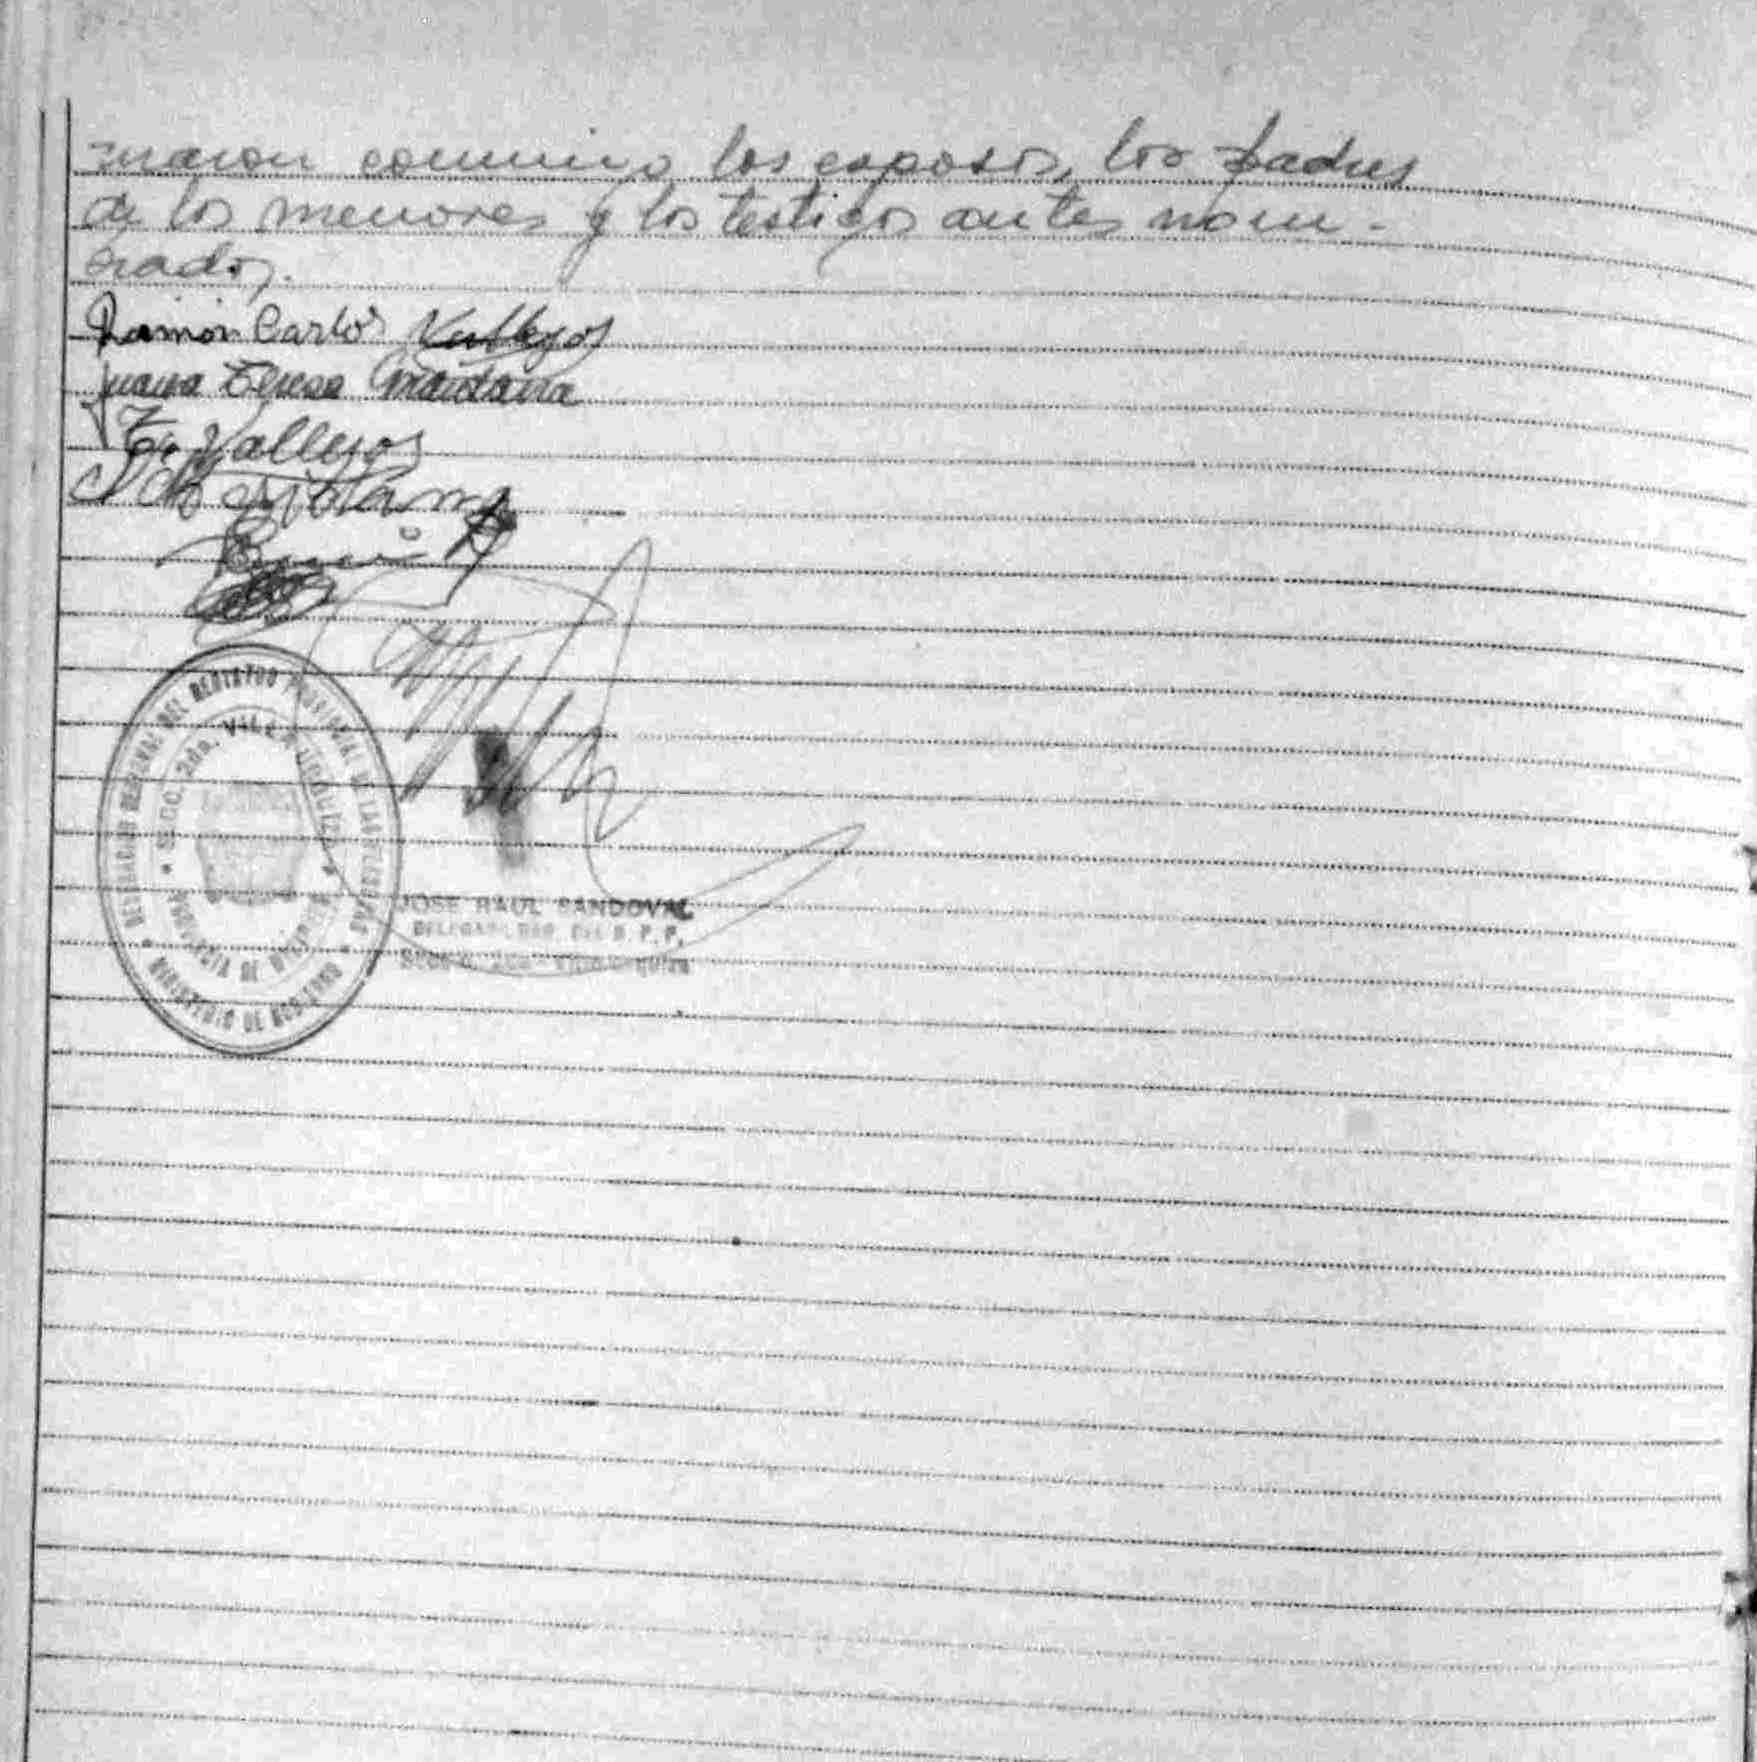 maron conmigo los esposos, los padres
de los menores y los testigos antes nom-
brados.
Ramón Carlos Vallejos
Juana Teresa Maidana
T. Vallejos
DELEGACION SECCIONAL DEL REGISTRO PROVINCIAL DE LAS PERSONAS
SECC. 2da. VILLA URQUIZA
PROVINCIA DE
MINISTERIO DE GOBIERNO
JOSE RAUL SANDOVAL
DEL R. P. P.